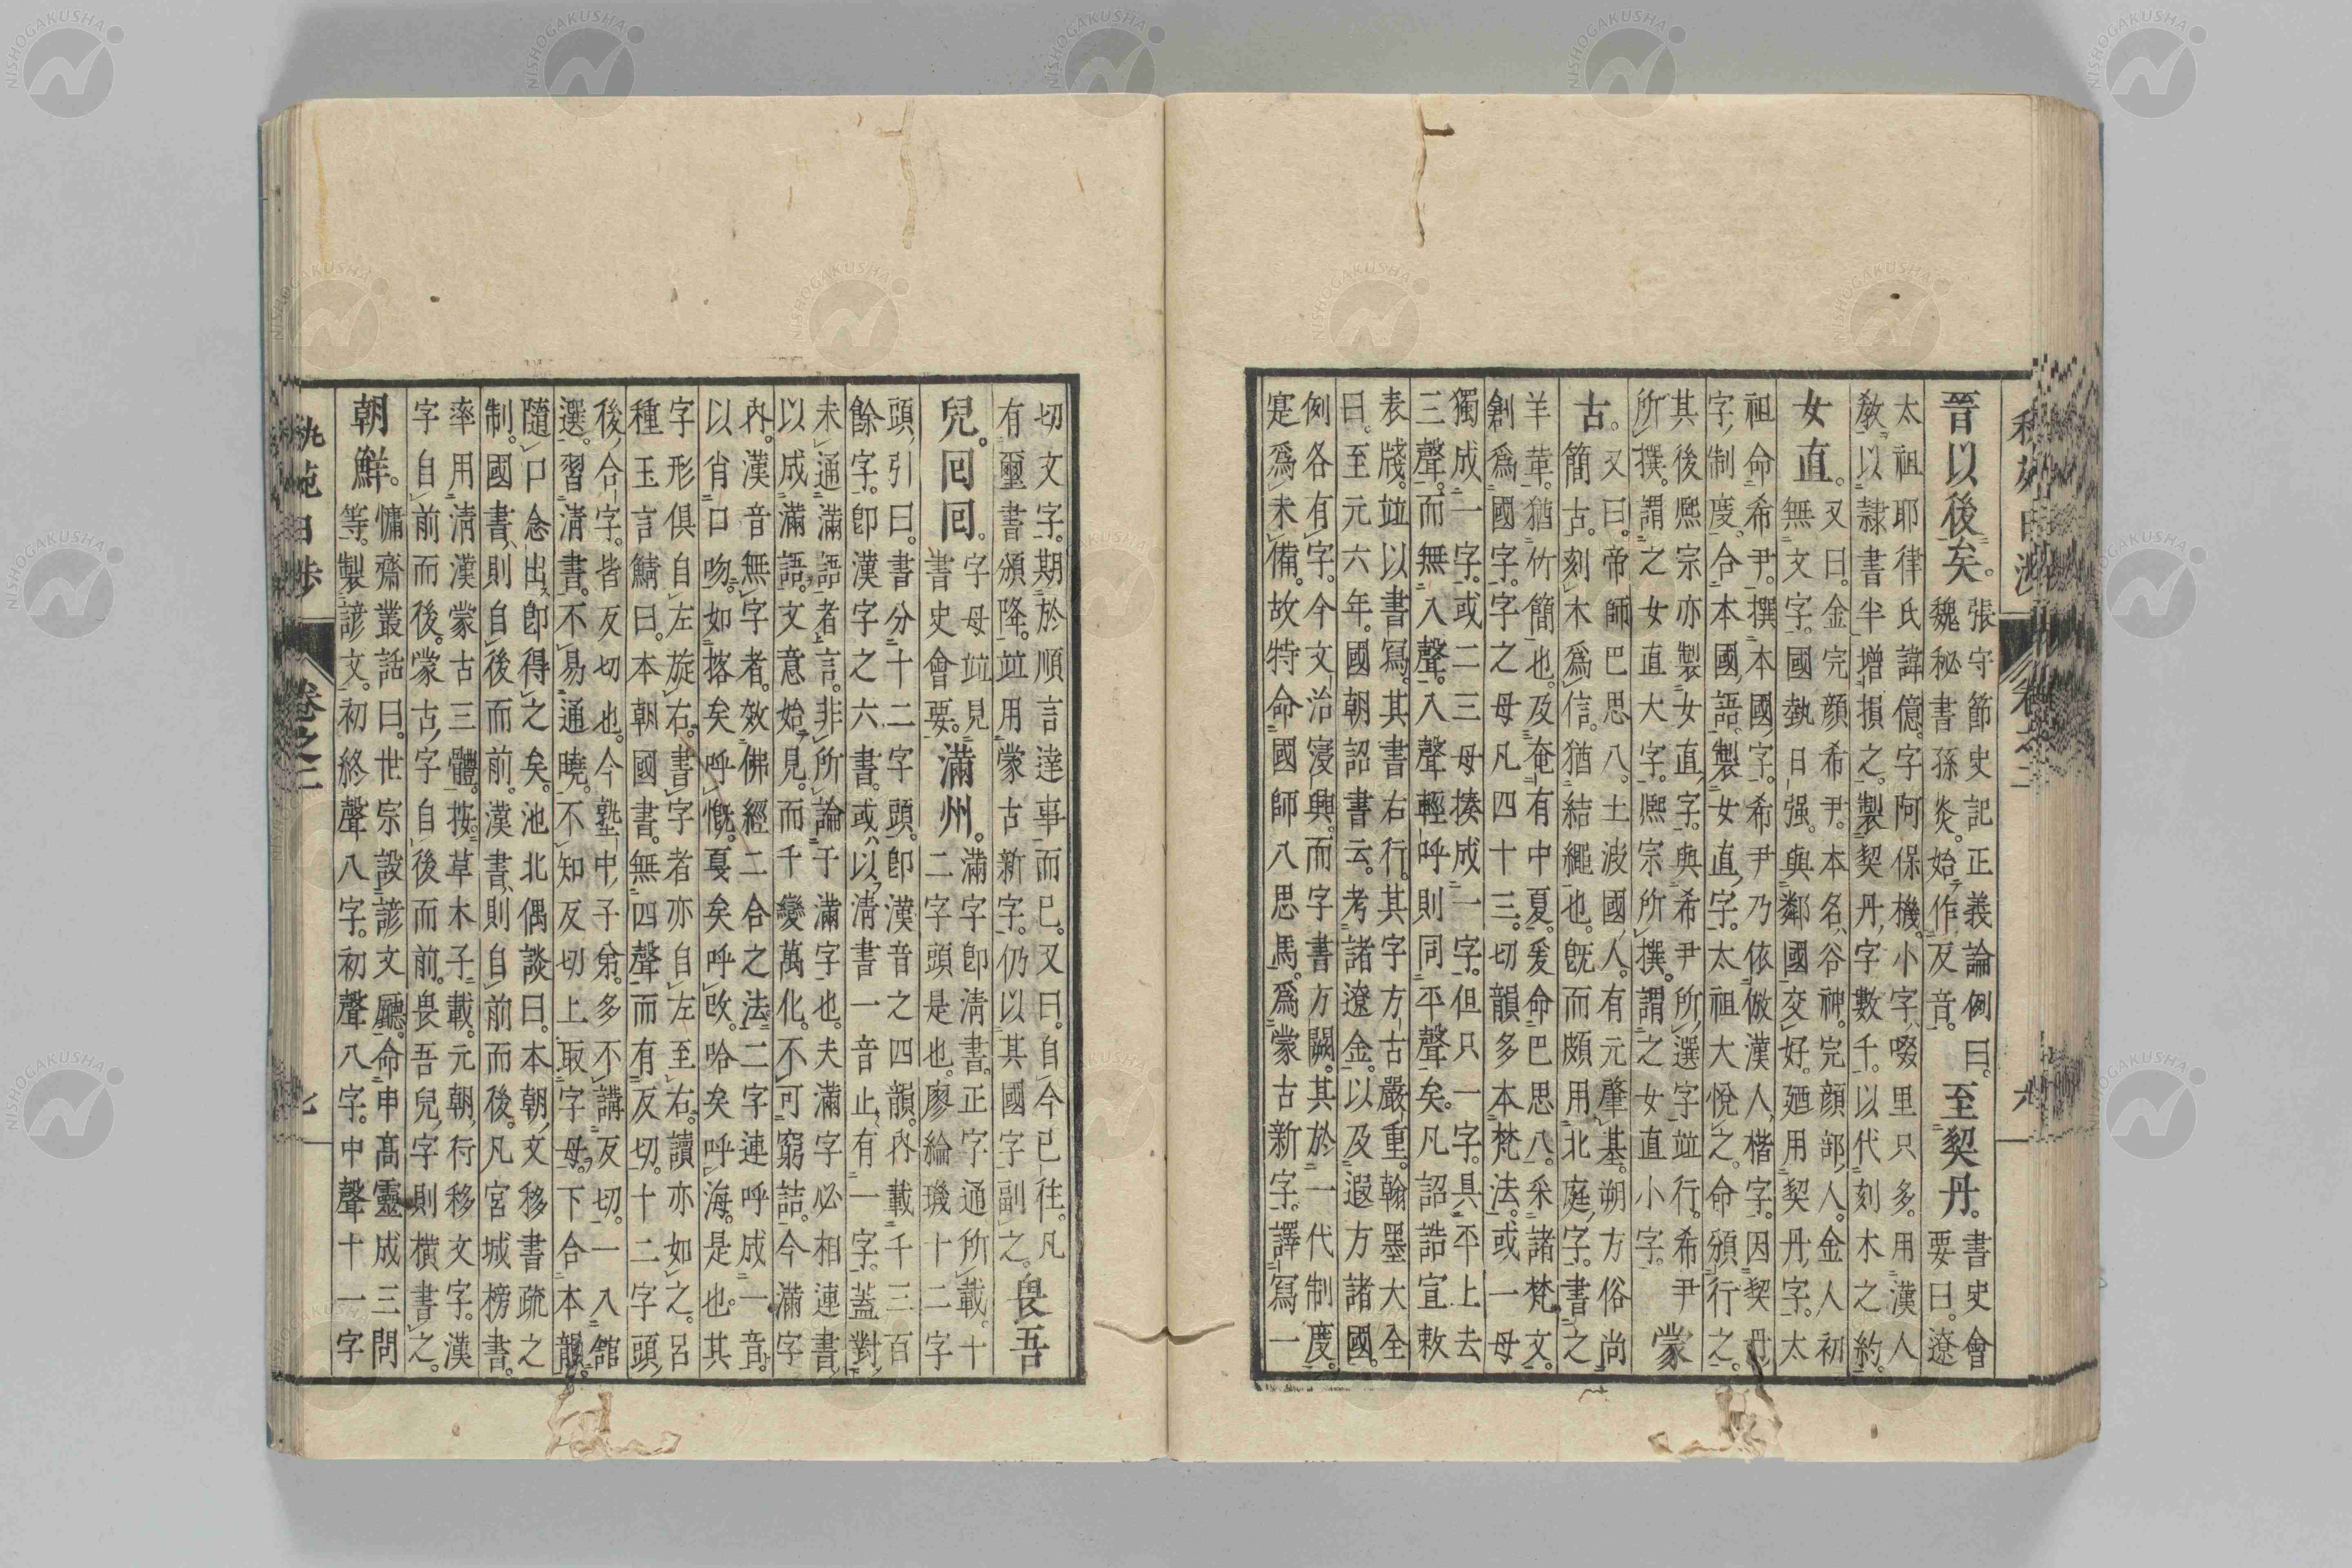 晉以後矣。
張守節史記正義論例曰。
魏秘書孫炎。始作反音。
至契丹。
書史會
要曰。遼
太祖耶律氏諱億。字阿保機。小字啜里只多。用漢人
敎以隸書半增損之。製契丹字數千。以代刻木之約。
女直。
又曰。金完顔希尹。本名谷神。完顔部人。金人初
無文字。國勢日强。與鄰國交好。廼用契丹字。太
祖命希尹。撰本國字。希尹乃依倣漢人楷字。因契丹
字制度。合本國語。製女直字。太祖大悅之。命頒行之。
其後熙宗亦製女直字。與希尹所選字竝行。希尹
所撰。謂之女直大字。熙宗所撰。謂之女直小字。
蒙
古。
又曰。帝師巴思八。土波國人。有元肇基。朔方俗尚
簡古。刻木爲信。猶結繩也。旣而頗用北庭字。書之
羊革。猶竹簡也。及奄有中夏。爰命巴思八。采諸梵文。
創爲國字。字之母凡四十三。切韻多本梵法。或一母
獨成一字。或二三母揍成一字。但只一字。具平上去
三聲。而無入聲。入聲輕呼則同平聲矣。凡詔誥宣敕
表牋。竝以書寫。其書右行。其字方古嚴重。翰墨大全
曰。至元六年。國朝詔書云。考諸遼金。以及遐方諸國。
例各有字。今文治寖興。而字書方闕。其於一代制度。
寔爲未備。故特命國師八思馬。爲蒙古新字。譯寫一
切文字。期於順言達事而已。又曰。自今已往。凡
有璽書頒降。竝用蒙古新字。仍以其國字副之。
畏吾
兒。回回。
字母竝見
書史會要。
滿州。
滿字卽淸書。正字通所載。十
二字頭是也。廖綸璣十二字
頭引曰。書分十二字頭。卽漢音之四韻。內載千三百
餘字。卽漢字之六書。或以淸書一音止有一字。蓋對
未通滿語者言。非所論于滿字也。夫滿字必相連書。
以成滿語。文意始見。而千變萬化。不可窮詰。今滿字
內。漢音無字者。效佛經二合之法。二字連呼成一音。
以肖口吻。如搭矣呼慨。戛矣呼改。哈矣呼海。是也。其
字形俱自左旋右。書字者亦自左至右。讀亦如之。呂
種玉言鯖曰。本朝國書。無四聲而有反切。十二字頭
後合字。皆反切也。今塾中子弟。多不講反切。一入館
選。習淸書。不易通曉。不知反切上取字母。下合本韻。
隨口念出卽得之矣。池北偶談曰。本朝文移書疏之
制。國書則自後而前。漢書則自前而後。凡宮城榜書。
率用淸漢蒙古三體。按。草木子載。元朝行移文字。漢
字自前而後。蒙古字自後而前。畏吾兒字則橫書之。
朝鮮。
慵齋叢話曰。世宗設諺文廳。命申高靈成三問
等。製諺文。初終聲八字。初聲八字。中聲十一字
苑日涉 卷之二
NISHOGAKUSHA